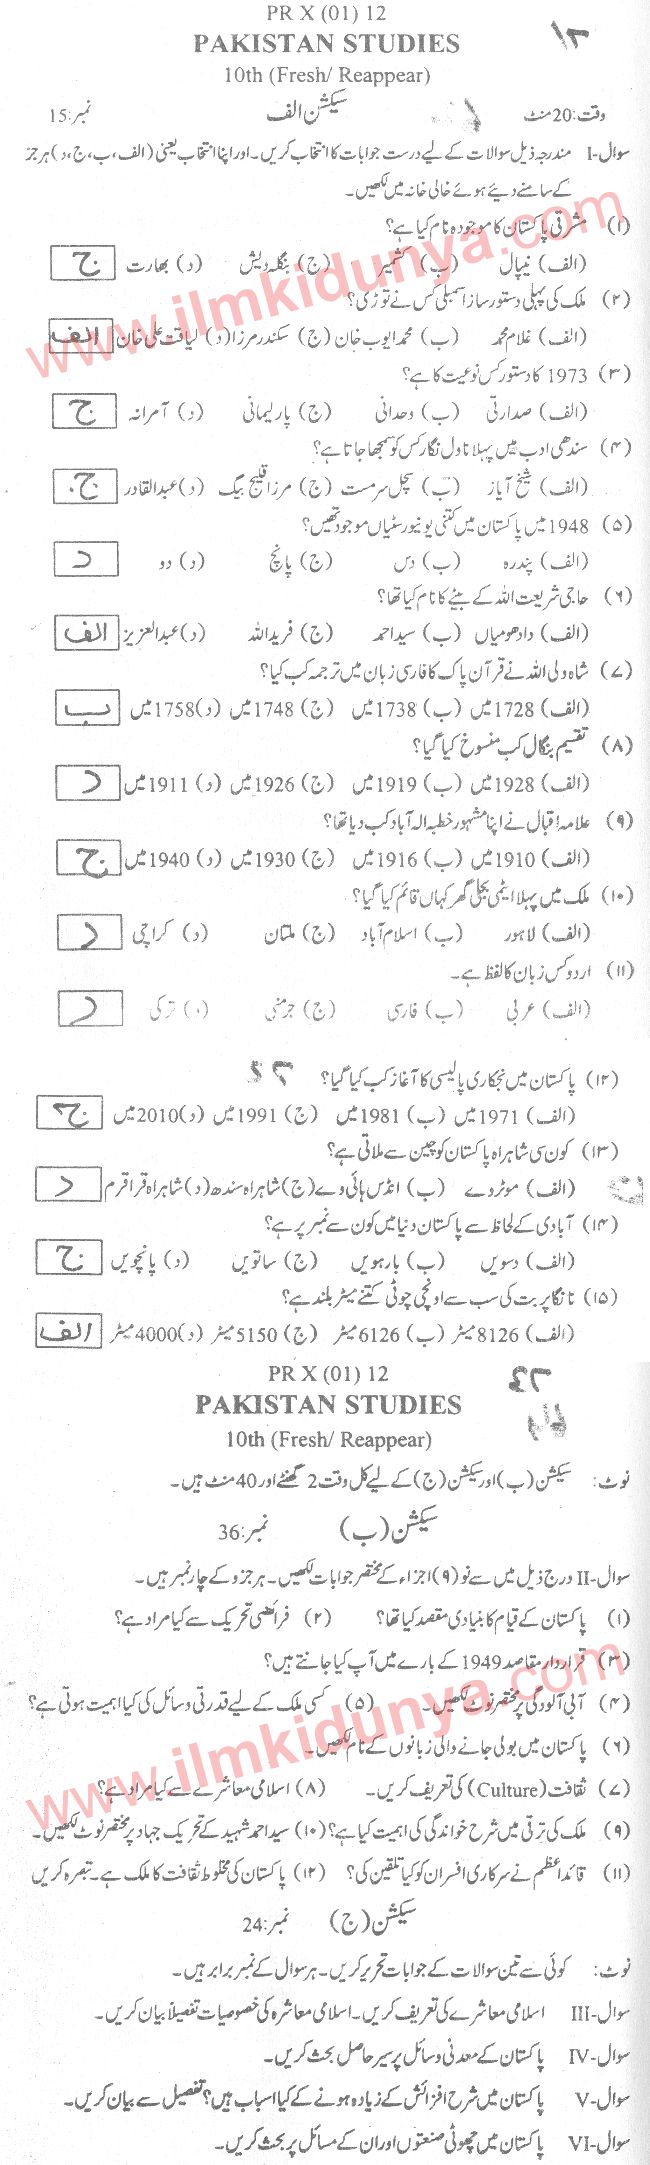 PR X (01) 12
PAKISTAN STUDIES
10th (Fresh/ Reappear)
وقت:20منٹ سیکشن الف نمبر:15
سوال-I مندرجہ ذیل سوالات کے لیے درست جوابات کا انتخاب کریں۔ اور اپنا انتخاب یعنی (الف، ب، ج، د) ہر جز
کے سامنے دیئے ہوئے خالی خانہ میں لکھیں۔
(۱) مشرقی پاکستان کا موجودہ نام کیا ہے؟
(الف) نیپال (ب) کشمیر (ج) بنگلہ دیش (د) بھارت ج
(۲) ملک کی پہلی دستور ساز اسمبلی کس نے توڑی؟
(الف) غلام محمد (ب) محمد ایوب خان (ج) سکندر مرزا (د) لیاقت علی خان الف
(۳) 1973 کا دستور کس نوعیت کا ہے؟
(الف) صدارتی (ب) وحدانی (ج) پارلیمانی (د) آمرانہ ج
(۴) سندھی ادب میں پہلا ناول نگار کس کو سمجھا جاتا ہے؟
(الف) شیخ آیاز (ب) سچل سرمست (ج) مرزا قلیج بیگ (د) عبدالقادر ج
(۵) 1948 میں پاکستان میں کتنی یونیورسٹیاں موجود تھیں؟
(الف) پندرہ (ب) دس (ج) پانچ (د) دو د
(۶) حاجی شریعت اللہ کے بیٹے کا نام کیا تھا؟
(الف) دادھومیاں (ب) سید احمد (ج) فرید اللہ (د) عبدالعزیز الف
(۷) شاہ ولی اللہ نے قرآن پاک کا فارسی زبان میں ترجمہ کب کیا؟
(الف) 1728میں (ب) 1738میں (ج) 1748میں (د) 1758میں ب
(۸) تقسیم بنگال کب منسوخ کیا گیا؟
(الف) 1928میں (ب) 1919میں (ج) 1926میں (د) 1911میں د
(۹) علامہ اقبال نے اپنا مشہور خطبہ الہ آباد کب دیا تھا؟
(الف) 1910میں (ب) 1916میں (ج) 1930میں (د) 1940میں ج
(۱۰) ملک میں پہلا ایٹمی بجلی گھر کہاں قائم کیا گیا؟
(الف) لاہور (ب) اسلام آباد (ج) ملتان (د) کراچی د
(۱۱) اردو کس زبان کا لفظ ہے۔
(الف) عربی (ب) فارسی (ج) جرمنی (د) ترکی د
(۱۲) پاکستان میں نجکاری پالیسی کا آغاز کب کیا گیا؟
(الف) 1971میں (ب) 1981میں (ج) 1991میں (د) 2010میں ج
(۱۳) کون سی شاہراہ پاکستان کو چین سے ملاتی ہے؟
(الف) موٹر وے (ب) انڈس ہائی وے (ج) شاہراہ سندھ (د) شاہراہ قراقرم د
(۱۴) آبادی کے لحاظ سے پاکستان دنیا میں کون سے نمبر پر ہے؟
(الف) دسویں (ب) بارہویں (ج) ساتویں (د) پانچویں ج
(۱۵) نانگا پربت کی سب سے اونچی چوٹی کتنے میٹر بلند ہے؟
(الف) 8126میٹر (ب) 6126میٹر (ج) 5150میٹر (د) 4000میٹر الف
PR X (01) 12
PAKISTAN STUDIES
10th (Fresh/ Reappear)
نوٹ: سیکشن (ب) اور سیکشن (ج) کے لیے کل وقت 2 گھنٹے اور 40 منٹ ہیں۔
سیکشن (ب) نمبر:36
سوال-II درج ذیل میں سے نو (۹) اجزاء کے مختصر جوابات لکھیں۔ ہر جزو کے چار نمبر ہیں۔
(۱) پاکستان کے قیام کا بنیادی مقصد کیا تھا؟ (۲) فرائضی تحریک سے کیا مراد ہے؟
(۳) قرارداد مقاصد 1949 کے بارے میں آپ کیا جانتے ہیں؟
(۴) آبی آلودگی پر مختصر نوٹ لکھیں۔ (۵) کسی ملک کے لیے قدرتی وسائل کی کیا اہمیت ہوتی ہے؟
(۶) پاکستان میں بولی جانے والی زبانوں کے نام لکھیں۔
(۷) ثقافت (Culture) کی تعریف کریں۔ (۸) اسلامی معاشرے سے کیا مراد ہے؟
(۹) ملک کی ترقی میں شرح خواندگی کی اہمیت کیا ہے؟ (۱۰) سید احمد شہید کے تحریک جہاد پر مختصر نوٹ لکھیں۔
(۱۱) قائد اعظم نے سرکاری افسران کو کیا تلقین کی؟ (۱۲) پاکستان کی مخلوط ثقافت کا ملک ہے۔ تبصرہ کریں
سیکشن (ج) نمبر:24
نوٹ: کوئی سے تین سوالات کے جوابات تحریر کریں۔ ہر سوال کے نمبر برابر ہیں۔
سوال-III اسلامی معاشرے کی تعریف کریں۔ اسلامی معاشرہ کی خصوصیات تفصیلاً بیان کریں۔
سوال-IV پاکستان کے معدنی وسائل پر سیر حاصل بحث کریں۔
سوال-V پاکستان میں شرح افزائش کے زیادہ ہونے کے کیا اسباب ہیں؟ تفصیل سے بیان کریں۔
سوال-VI پاکستان میں چھوٹی صنعتوں اور ان کے مسائل پر بحث کریں۔
www.ilmkidunya.com
www.ilmkidunya.com